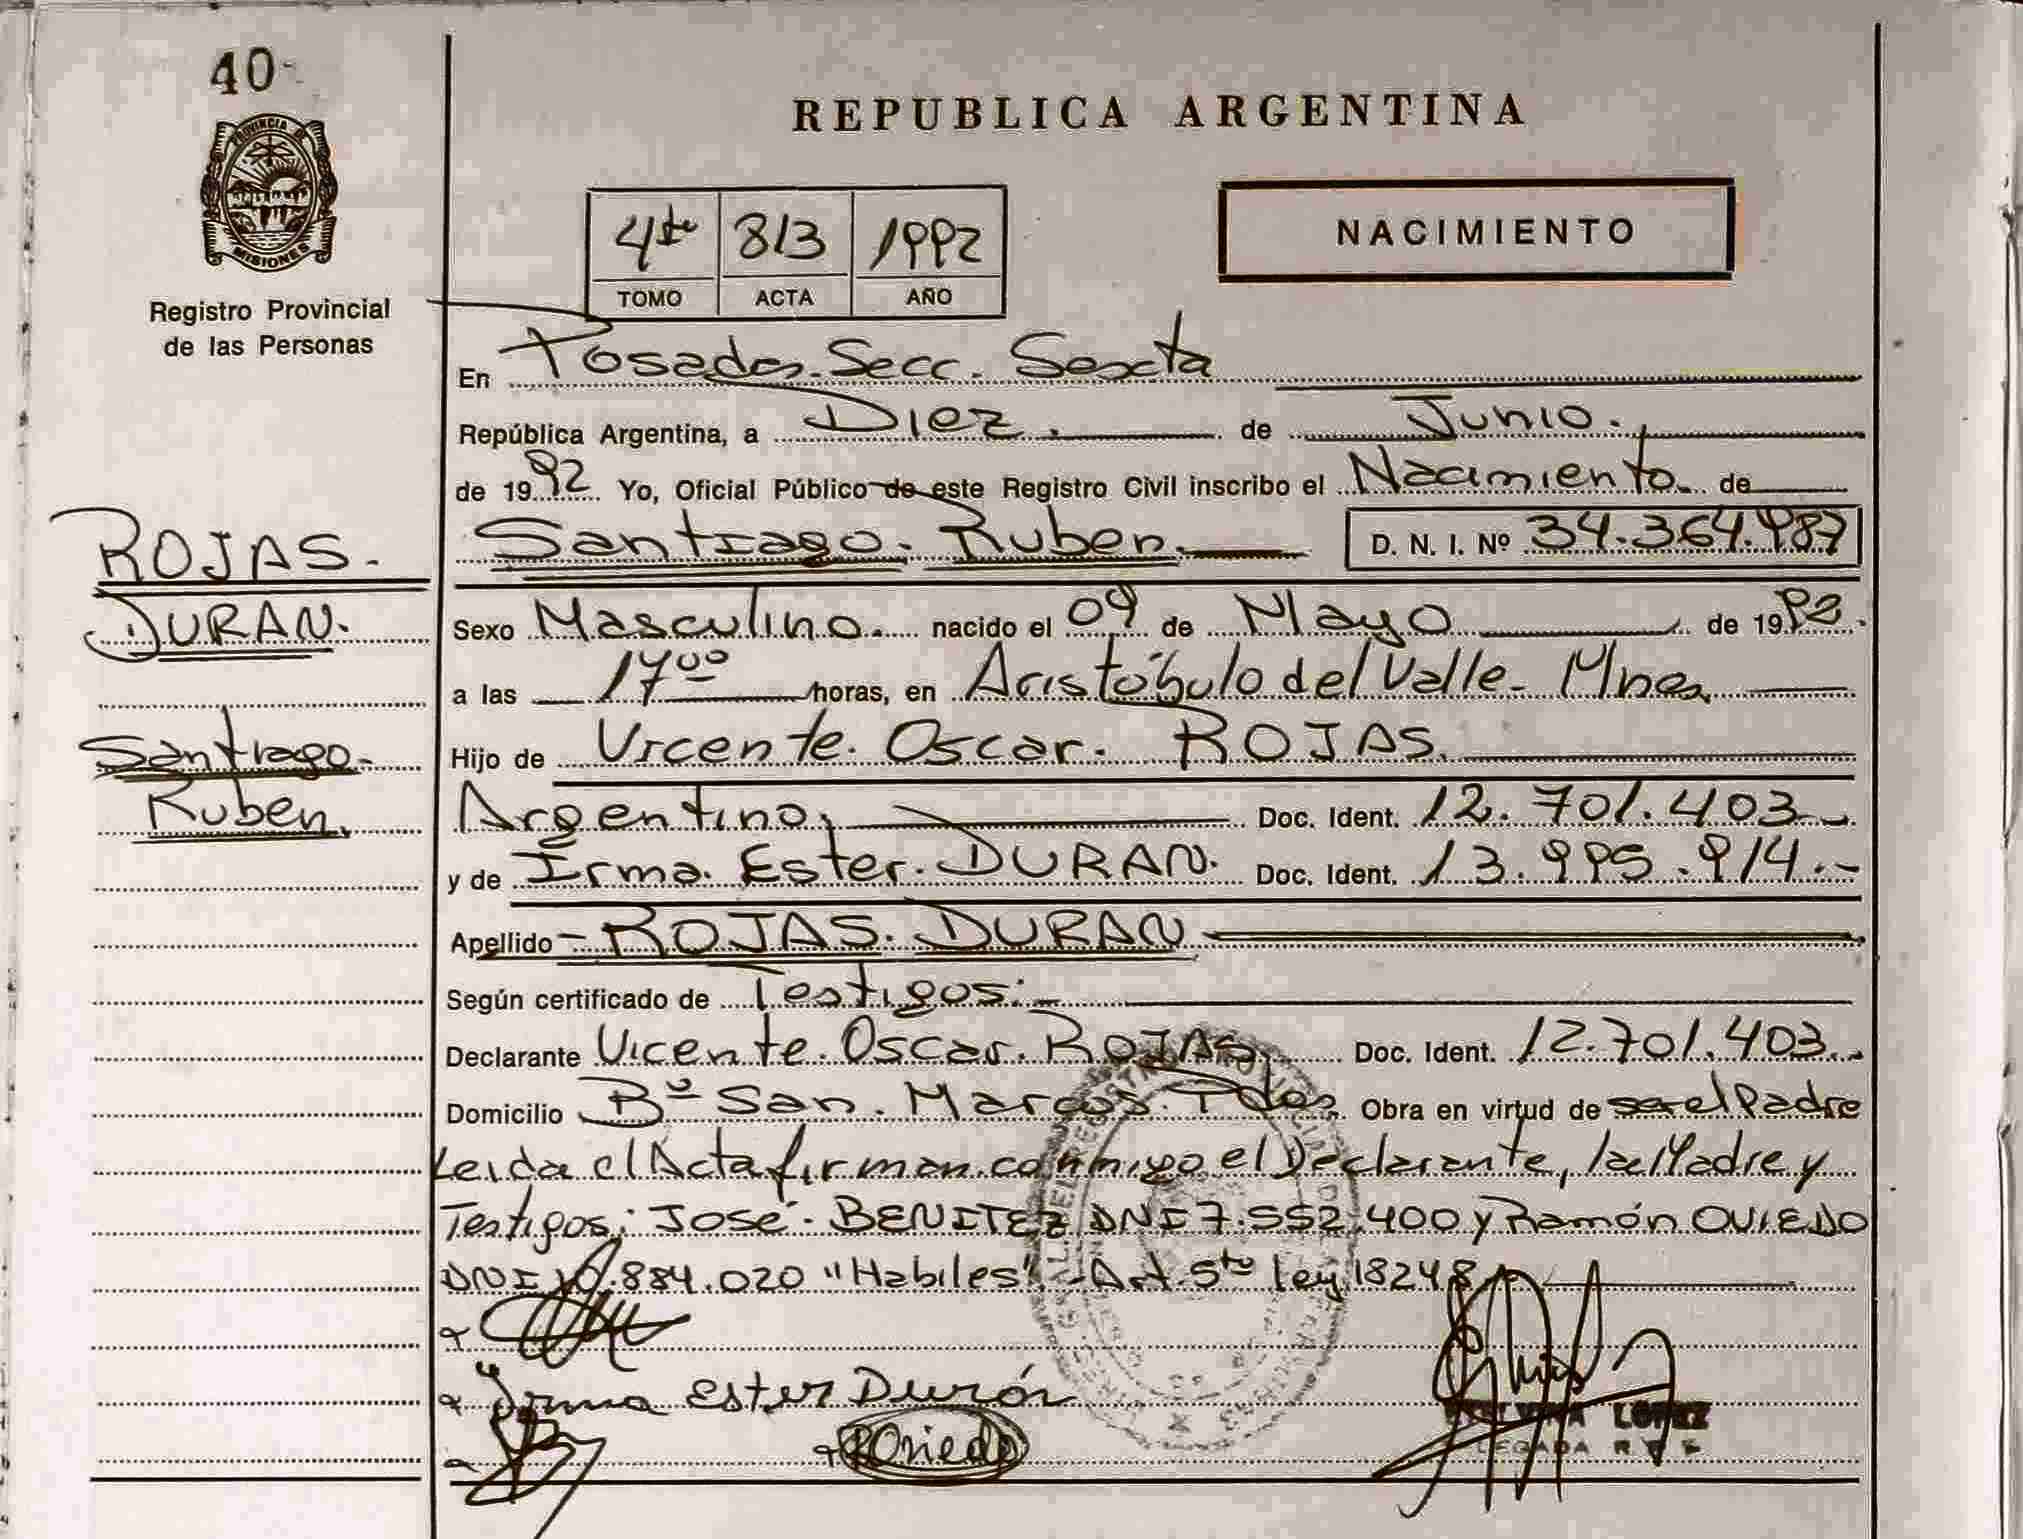 40
PROVINCIA DE
MISIONES
Registro Provincial
de las Personas
REPUBLICA ARGENTINA
NACIMIENTO
4to 813 1992
TOMO ACTA AÑO
En Posadas. Secc. Sexta
República Argentina, a Diez. de Junio.
de 1992 Yo, Oficial Público de este Registro Civil inscribo el Nacimiento. de
Santiago. Ruben. D. N. I. Nº 34.364.987
ROJAS.
DURAN.
Santiago.
Ruben.
Sexo Masculino. nacido el 09 de Mayo de 1992.
a las 17⁰⁰ horas, en Aristóbulo del Valle- Mnes.
Hijo de Vicente. Oscar. ROJAS.
Argentino. Doc. Ident. 12.701.403
y de Irma. Ester. DURAN. Doc. Ident. 13.995.914.-
Apellido - ROJAS. DURAN
Según certificado de Testigos:-
Declarante Vicente. Oscar. ROJAS Doc. Ident. 12.701.403.-
Domicilio Bº San. Marcos. Pdas. Obra en virtud de ser el Padre
Leida el Acta firman conmigo el Declarante, la Madre y
Testigos: José- BENITEZ DNI 7.552.400 y Ramón OVIEDO
DNI 10.884.020 "Habiles"- Art. 5to ley 18248
Irma Ester Durán
ROviedo
LOPEZ